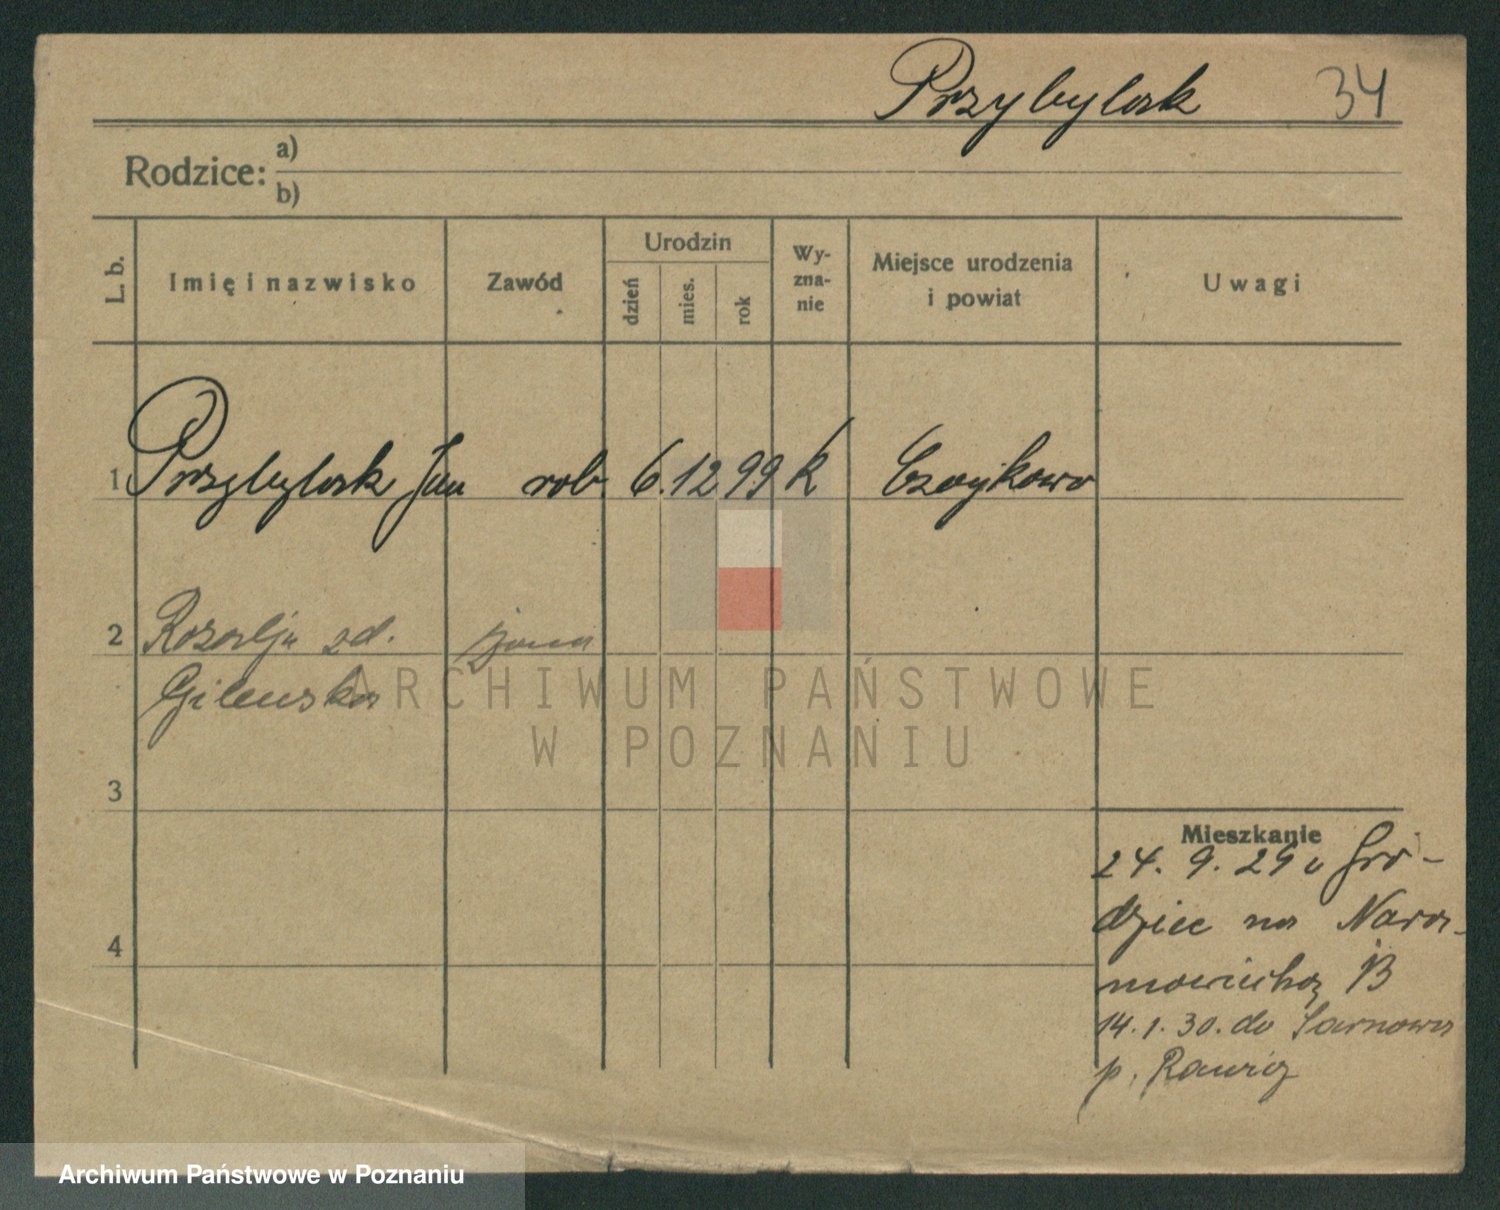 Przybylak 34
Rodzice: a)
b)
L. b.
Imię i nazwisko
Zawód
Urodzin
dzień
mies.
rok
Wy-
zna-
nie
Miejsce urodzenia
i powiat
Uwagi
1 Przybylak Jan rob. 6. 12 99 K
2 Rozalja zd. żona
Gilewska
3
Mieszkanie
24. 9. 29 Gro-
dziec na Nara-
mowicką B
4
14. 1. 30. do Sarnowa
p. Rawicz
ARCHIWUM PAŃSTWOWE
W POZNANIU
Archiwum Państwowe w Poznaniu